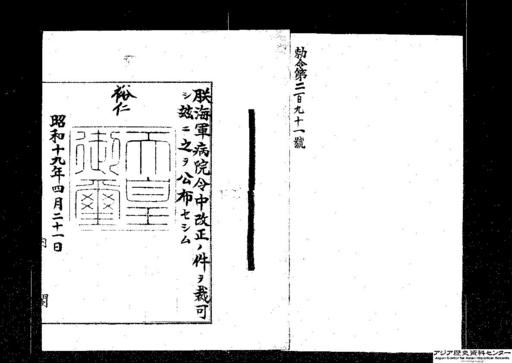 勅令第二百九十一號
朕海軍病院令中改正ノ件ヲ裁可
シ玆ニ之ヲ公布セシム
裕仁
天皇
御璽
昭和十九年四月二十一日
内閣
アジア歴史資料センター
Japan Center for Asian Historical Records